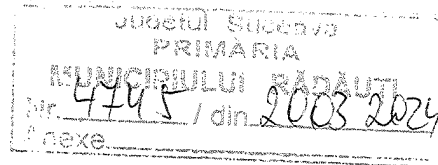 Județul Suceava
PRIMĂRIA
MUNICIPIULUI RĂDĂUȚI
Nr. 4745 / din 20 03 2024
Anexe